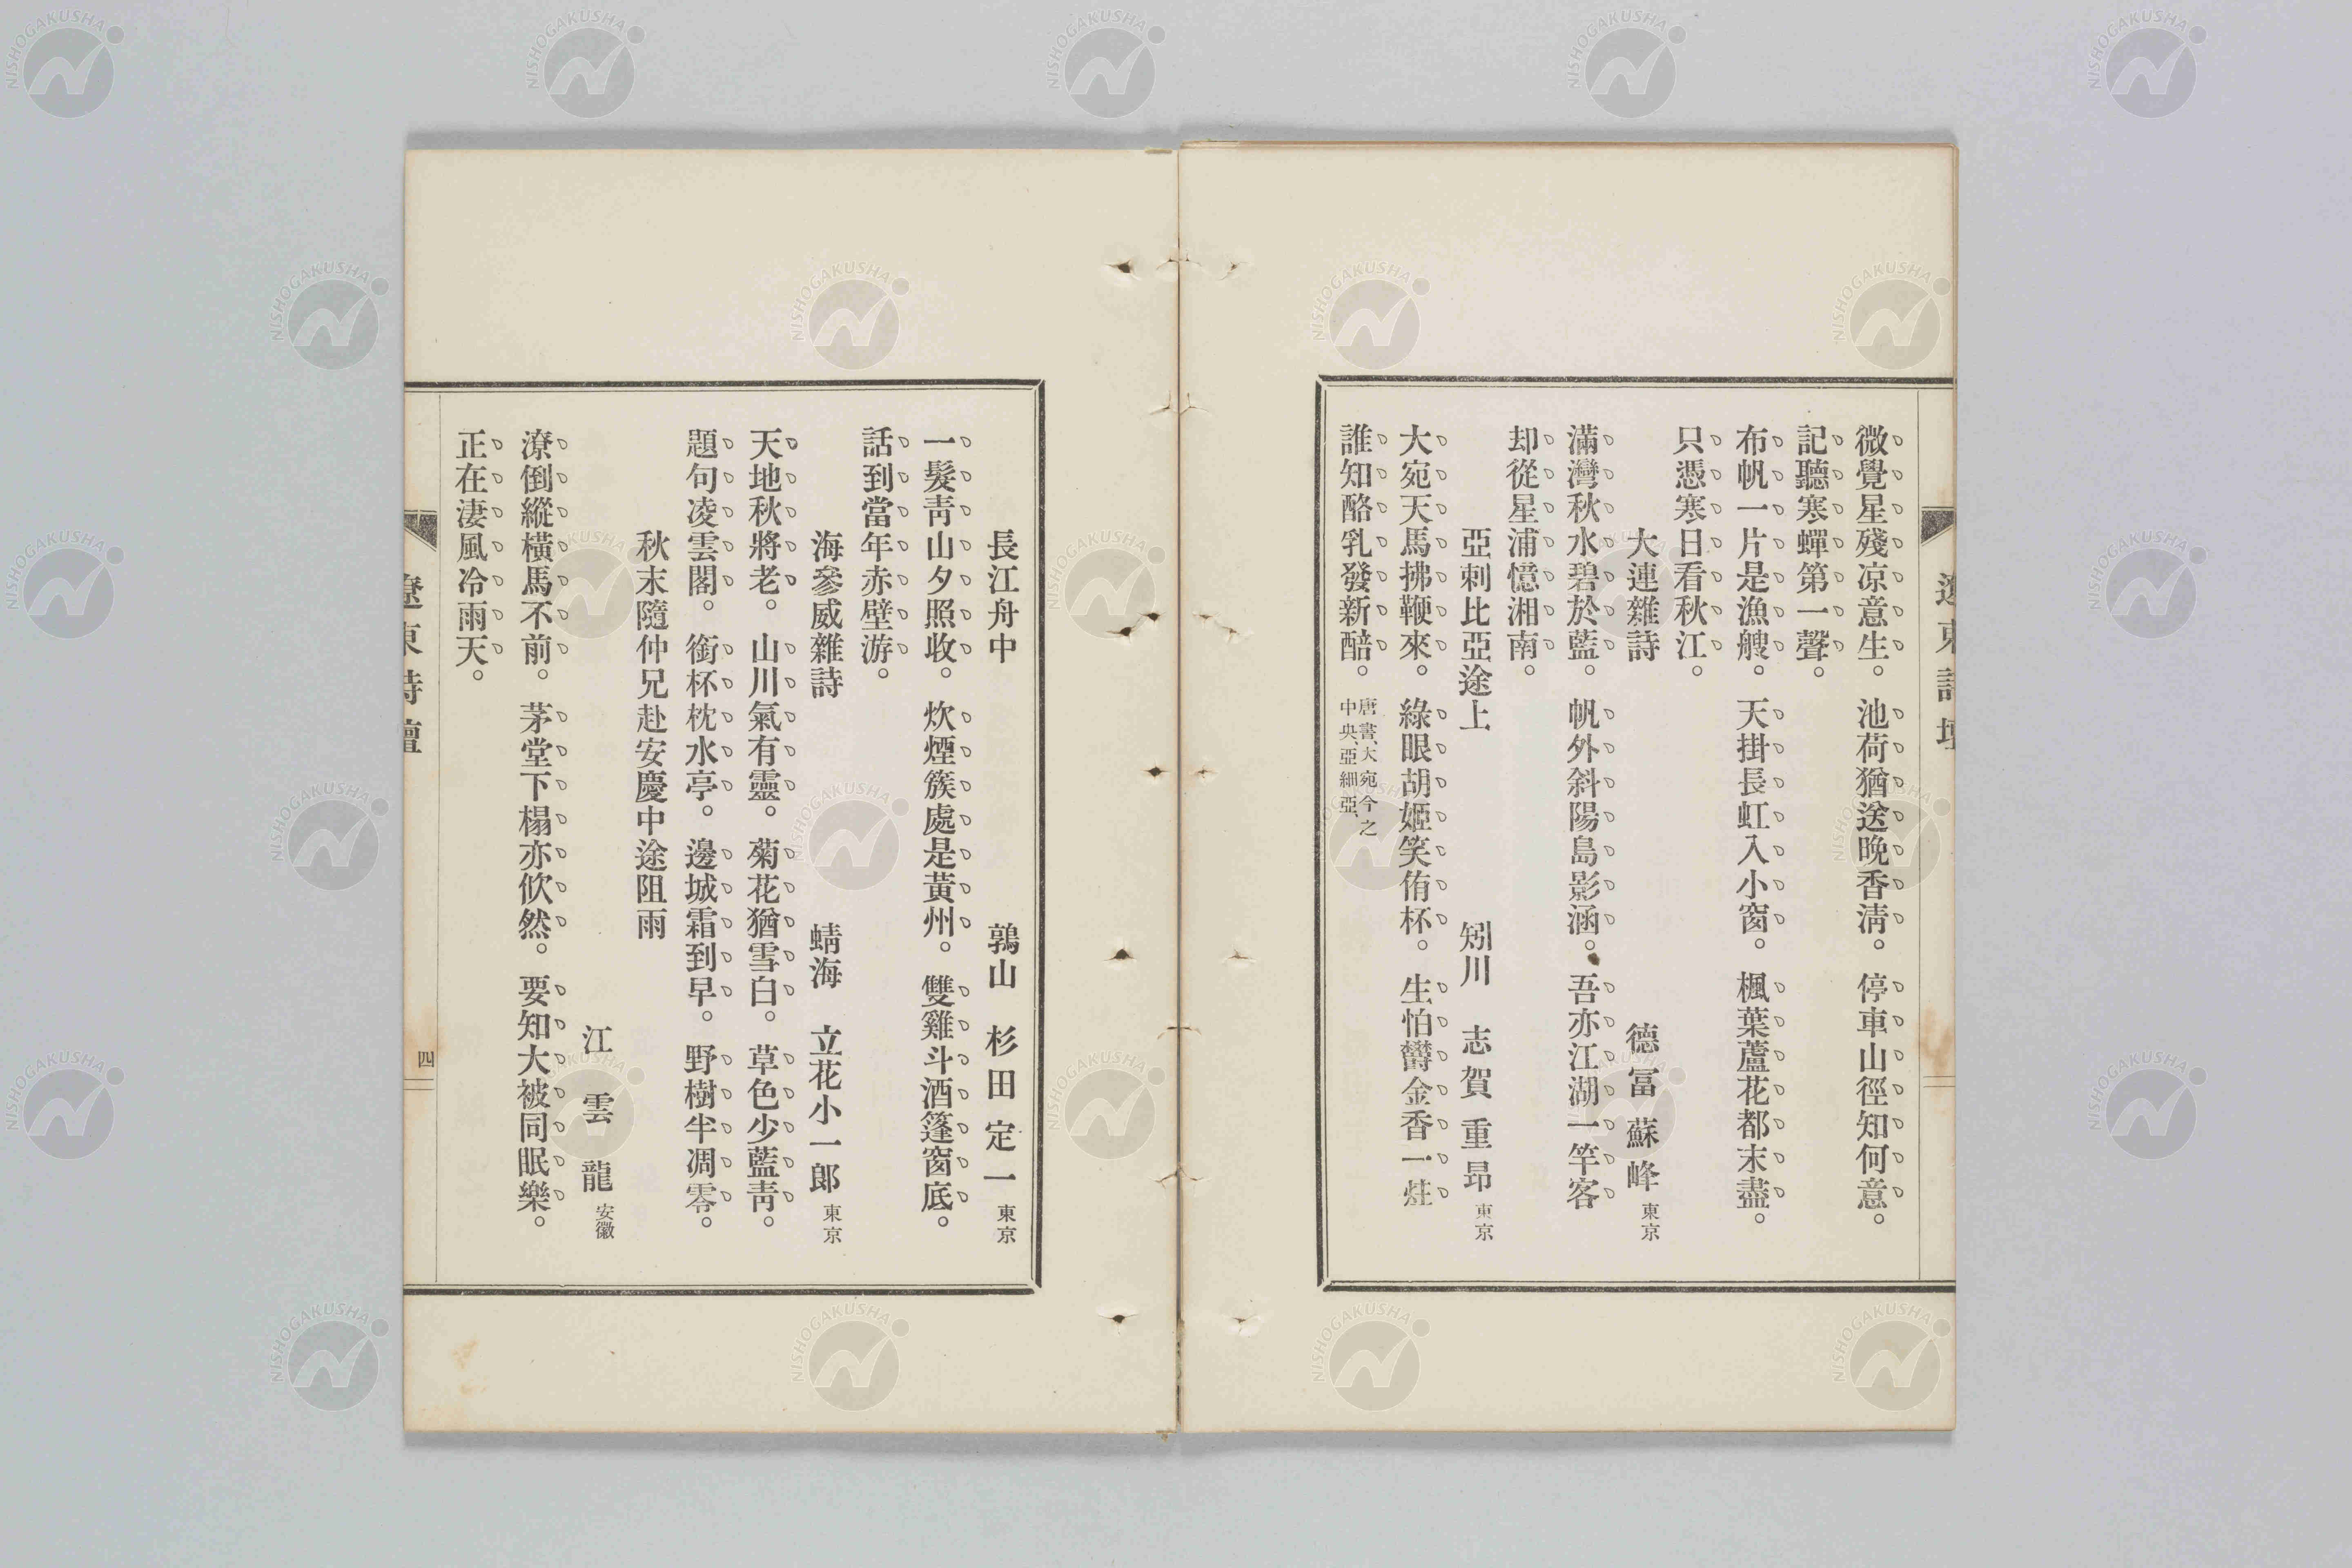 微覺星殘凉意生。池荷猶送晚香淸。停車山徑知何意。
記聽寒蟬第一聲。
布帆一片是漁艘。天掛長虹入小窗。楓葉蘆花都末盡。
只憑寒日看秋江。
大連雜詩　德冨蘇峰 東京
滿灣秋水碧於藍。帆外斜陽島影涵。吾亦江湖一竿客
却從星浦憶湘南。
亞刺比亞途上　矧川 志賀重昂 東京
大宛天馬拂鞭來。綠眼胡姬笑侑杯。生怕欝金香一炷
誰知酪乳發新醅。唐書、大宛今之
中央、亞細亞、
遼東詩壇
長江舟中　鶉山 杉田定一 東京
一髮靑山夕照收。炊煙簇處是黃州。雙雞斗酒篷窗底。
話到當年赤壁游。
海參威雜詩　蜻海 立花小一郞 東京
天地秋將老。山川氣有靈。菊花猶雪白。草色少藍靑。
題句凌雲閣。銜杯枕水亭。邊城霜到早。野樹半凋零。
秋末隨仲兄赴安慶中途阻雨
江雲龍 安徽
潦倒縱橫馬不前。茅堂下榻亦佽然。要知大被同眠樂。
正在淒風冷雨天。
遼東詩壇
四
NISHOGAKUSHA